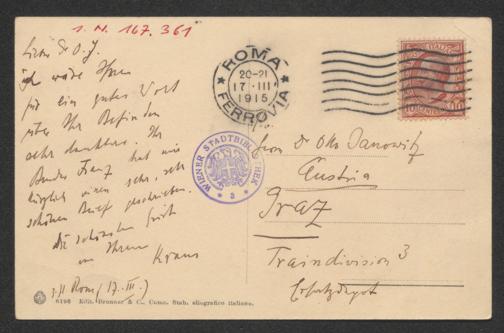 I. N. 167.361
Lieber Dr. O. J.
ich wäre Ihnen
für ein gutes Wort
über Ihr Befinden
sehr dankbar. Ihr
Bruder Franz hat mir
kürzlich einen sehr, sehr
schönen Brief geschrieben.
die schönsten Grüße
von Ihrem
Kraus
Rom (17. III.)
ROMA
20-21
17·III
1915
FERROVIA
WIENER STADTBIBLIOTHEK
Herrn Dr Otto Janowitz
Austria
Graz
Traindivision 3
Ersatzdepot
6196 Edit. Brunner & C., Como. Stab. eliografico italiano.